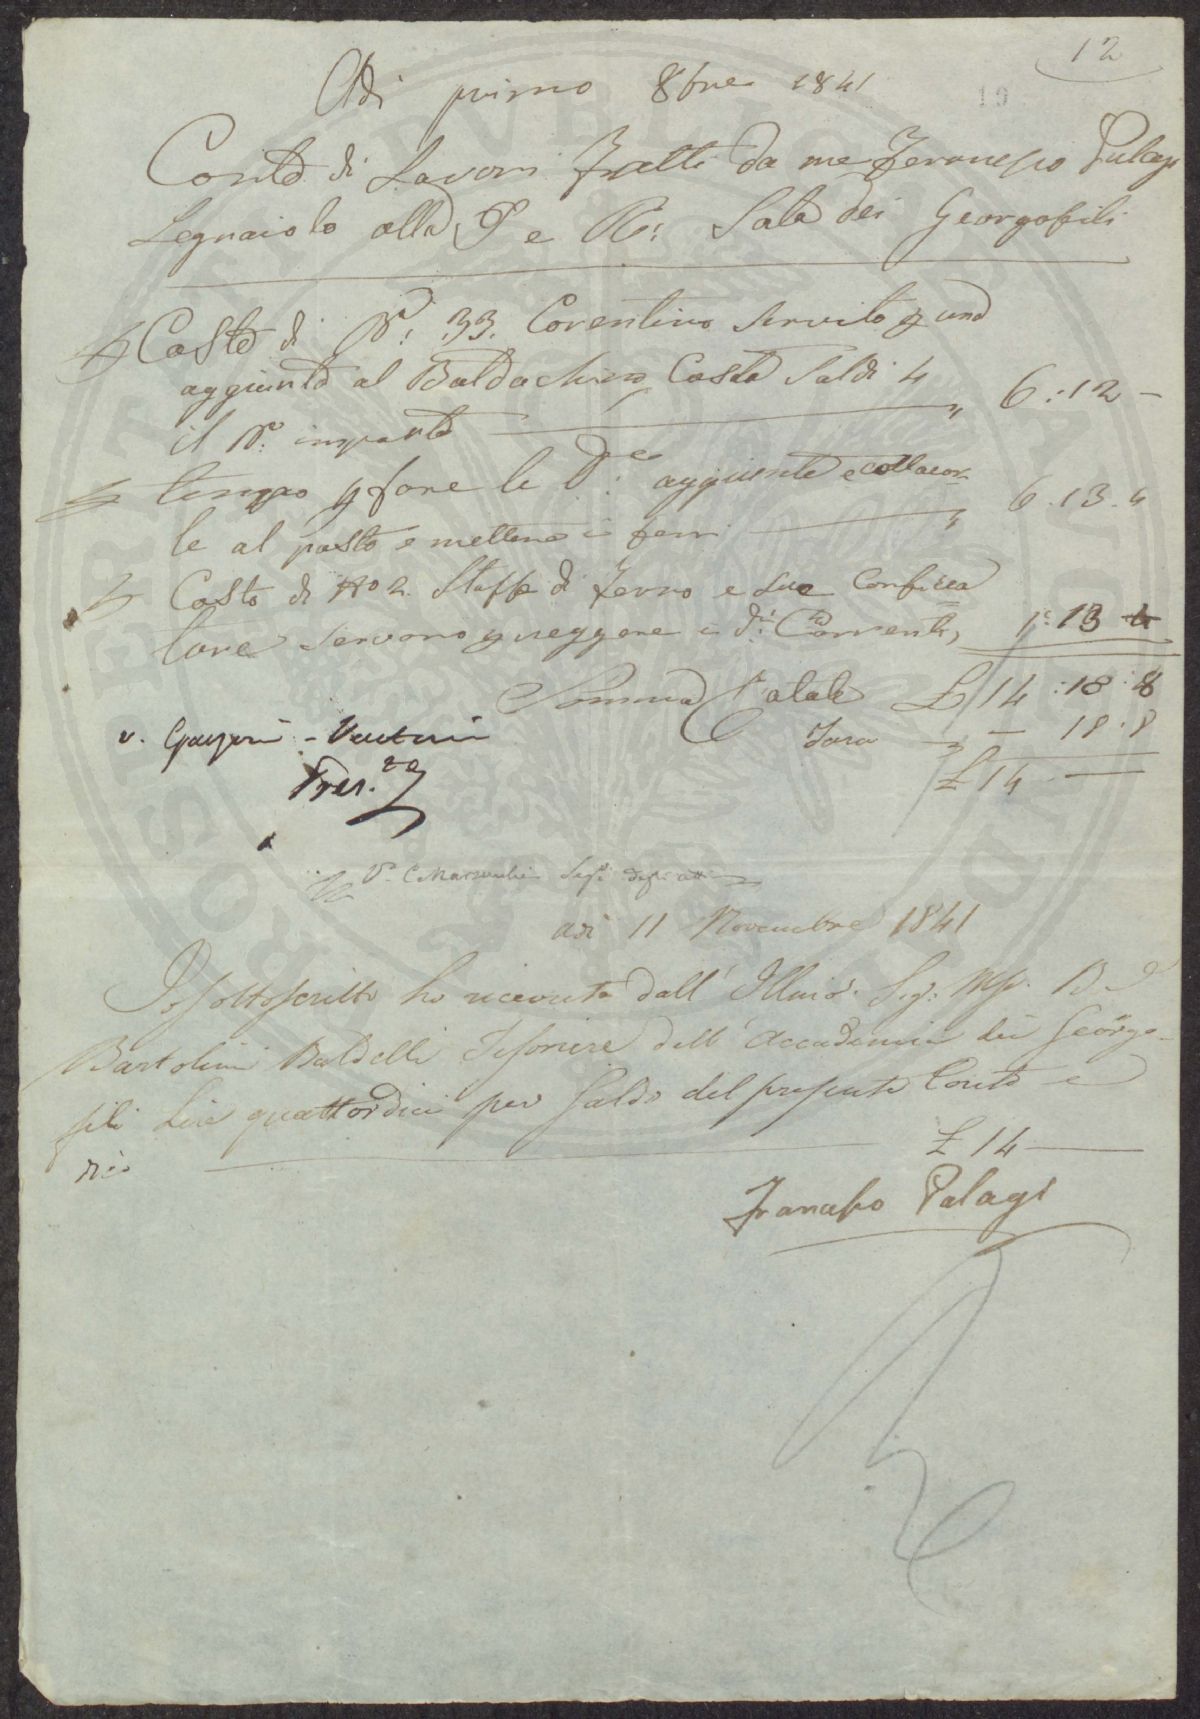 12
19
Adi primo 8bre 1841
Conto di Lavori Fratti da me Francesco Palagi
Legnaiolo alla I e R: Sala dei Georgofili
Costo di N: 33. Corentino servito p una
aggiunta al Baldachino Costa Saldi 4
il N: importa 6:12 -
tempo p fare le D: aggiunte e collocar
le al posto e mettere i ferri 6.13.4
Costo di No 2. Staffe di Ferro e sue Conficca
ture servono p reggere i di: Correnti, 1:13 4
Somma Totale £ 14:18:8
Tara — 18.8
£ 14 —
v.
Pres.
adi 11 Novembre 1841
Io sottoscritto ho ricevuto dall' Illmo. Sig:
Bartolini Baldelli Tesoriere dell' Accademia dei Georgo-
fili Lire quattordici per Saldo del presente Conto e
dico £ 14 —
Franceso Palagi